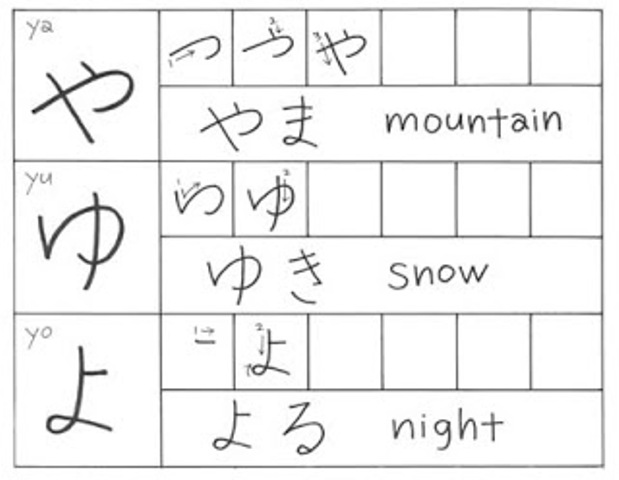 ya
や
1 つ 2 つ 3 や
やま mountain
yu
ゆ
1 い 2 ゆ
ゆき snow
yo
よ
1 - 2 よ
よる night